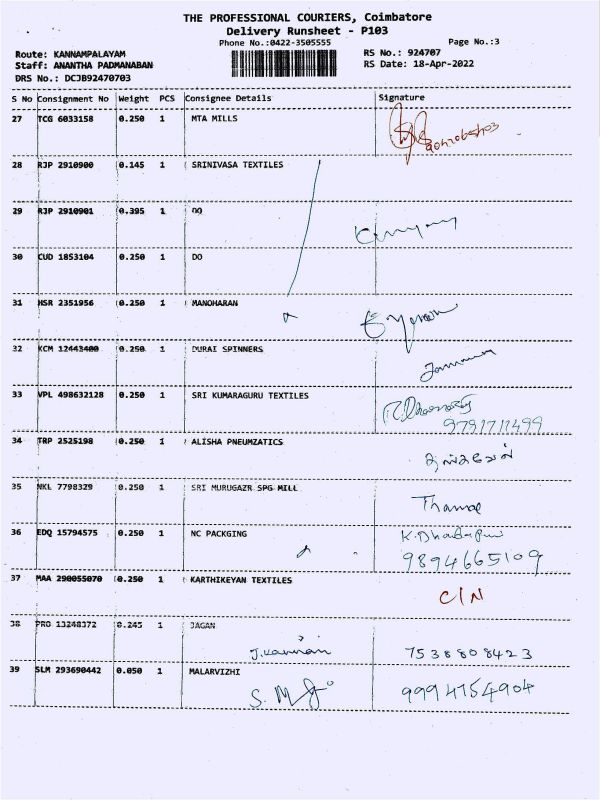 THE PROFESSIONAL COURIERS, Coimbatore
Delivery Runsheet - P103
Phone No.:0422-3505555
Page No.:3
Route: KANNAMPALAYAM
RS No.: 924707
Staff: ANANTHA PADMANABAN
RS Date: 18-Apr-2022
DRS No.: DCJB92470703
S No Consignment No Weight PCS Consignee Details Signature
27 TCG 6033158 0.250 1 MTA MILLS
28 RJP 2910900 0.145 1 SRINIVASA TEXTILES
29 RJP 2910901 0.395 1 DO
30 CUD 1853104 0.250 1 DO
31 MSR 2351956 0.250 1 MANOHARAN
32 KCM 12443400 0.250 1 DURAI SPINNERS
33 VPL 498632128 0.250 1 SRI KUMARAGURU TEXTILES
9791711499
34 TRP 2525198 0.250 1 ALISHA PNEUMZATICS
35 NKL 7798329 0.250 1 SRI MURUGAZR SPG MILL
36 EDQ 15794575 0.250 1 NC PACKGING
9894665109
37 MAA 290055070 0.250 1 KARTHIKEYAN TEXTILES
C/N
38 PRO 13248372 0.245 1 JAGAN
7538808423
39 SLM 293690442 0.050 1 MALARVIZHI
9994754904